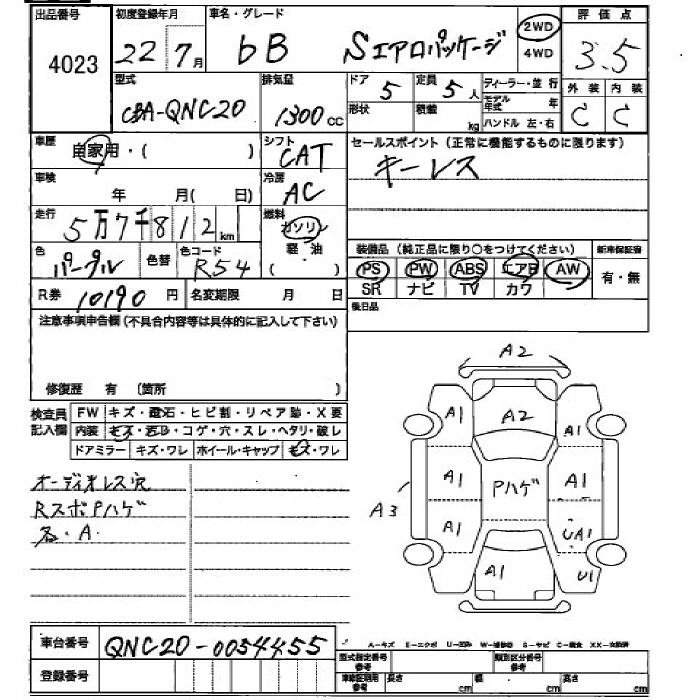 出品番号 初度登録年月 車名・グレード 評価点
4023 22年7月 bB Sエアロパッケージ 2WD 4WD 3.5
型式 排気量 ドア 定員 ディーラー・並行 外装 内装
CBA-QNC20 1300cc 5 5人 モデル年式 年 C C
形状 積載 kg ハンドル 左・右
車歴 自家用・( ) シフト CAT セールスポイント (正常に機能するものに限ります)
車検 年 月( 日) 冷房 AC キーレス
走行 5万7千812km 燃料 ガソリン 軽油 ( )
色 パープル 色替 色コード R54 装備品 (純正品に限り○をつけてください) 新車保証書
PS PW ABS エアB AW 有・無
R券 10190円 名変期限 月 日 SR ナビ TV カワ
注意事項申告欄(不具合内容等は具体的に記入して下さい) 後日品
修復歴 有 (箇所 )
検査員記入欄 FW キズ・飛石・ヒビ割・リペア跡・X要
内装 キズ・汚れ・コゲ・穴・スレ・ヘタリ・破レ
ドアミラー キズ・ワレ ホイール・キャップ キズ・ワレ
オーディオレス穴
RスポPハゲ
名・A.
A2
A1 A2 A1
A1 Pハゲ A1
A3
A1 UA1
A1 U1
車台番号 QNC20-0054455
A-キズ E-エクボ U-凹み W-補修跡 S-サビ C-腐食 XX-交換済
登録番号 型式指定番号参考 類別区分番号参考
車庫証明用参考 長さ cm 幅 cm 高さ cm